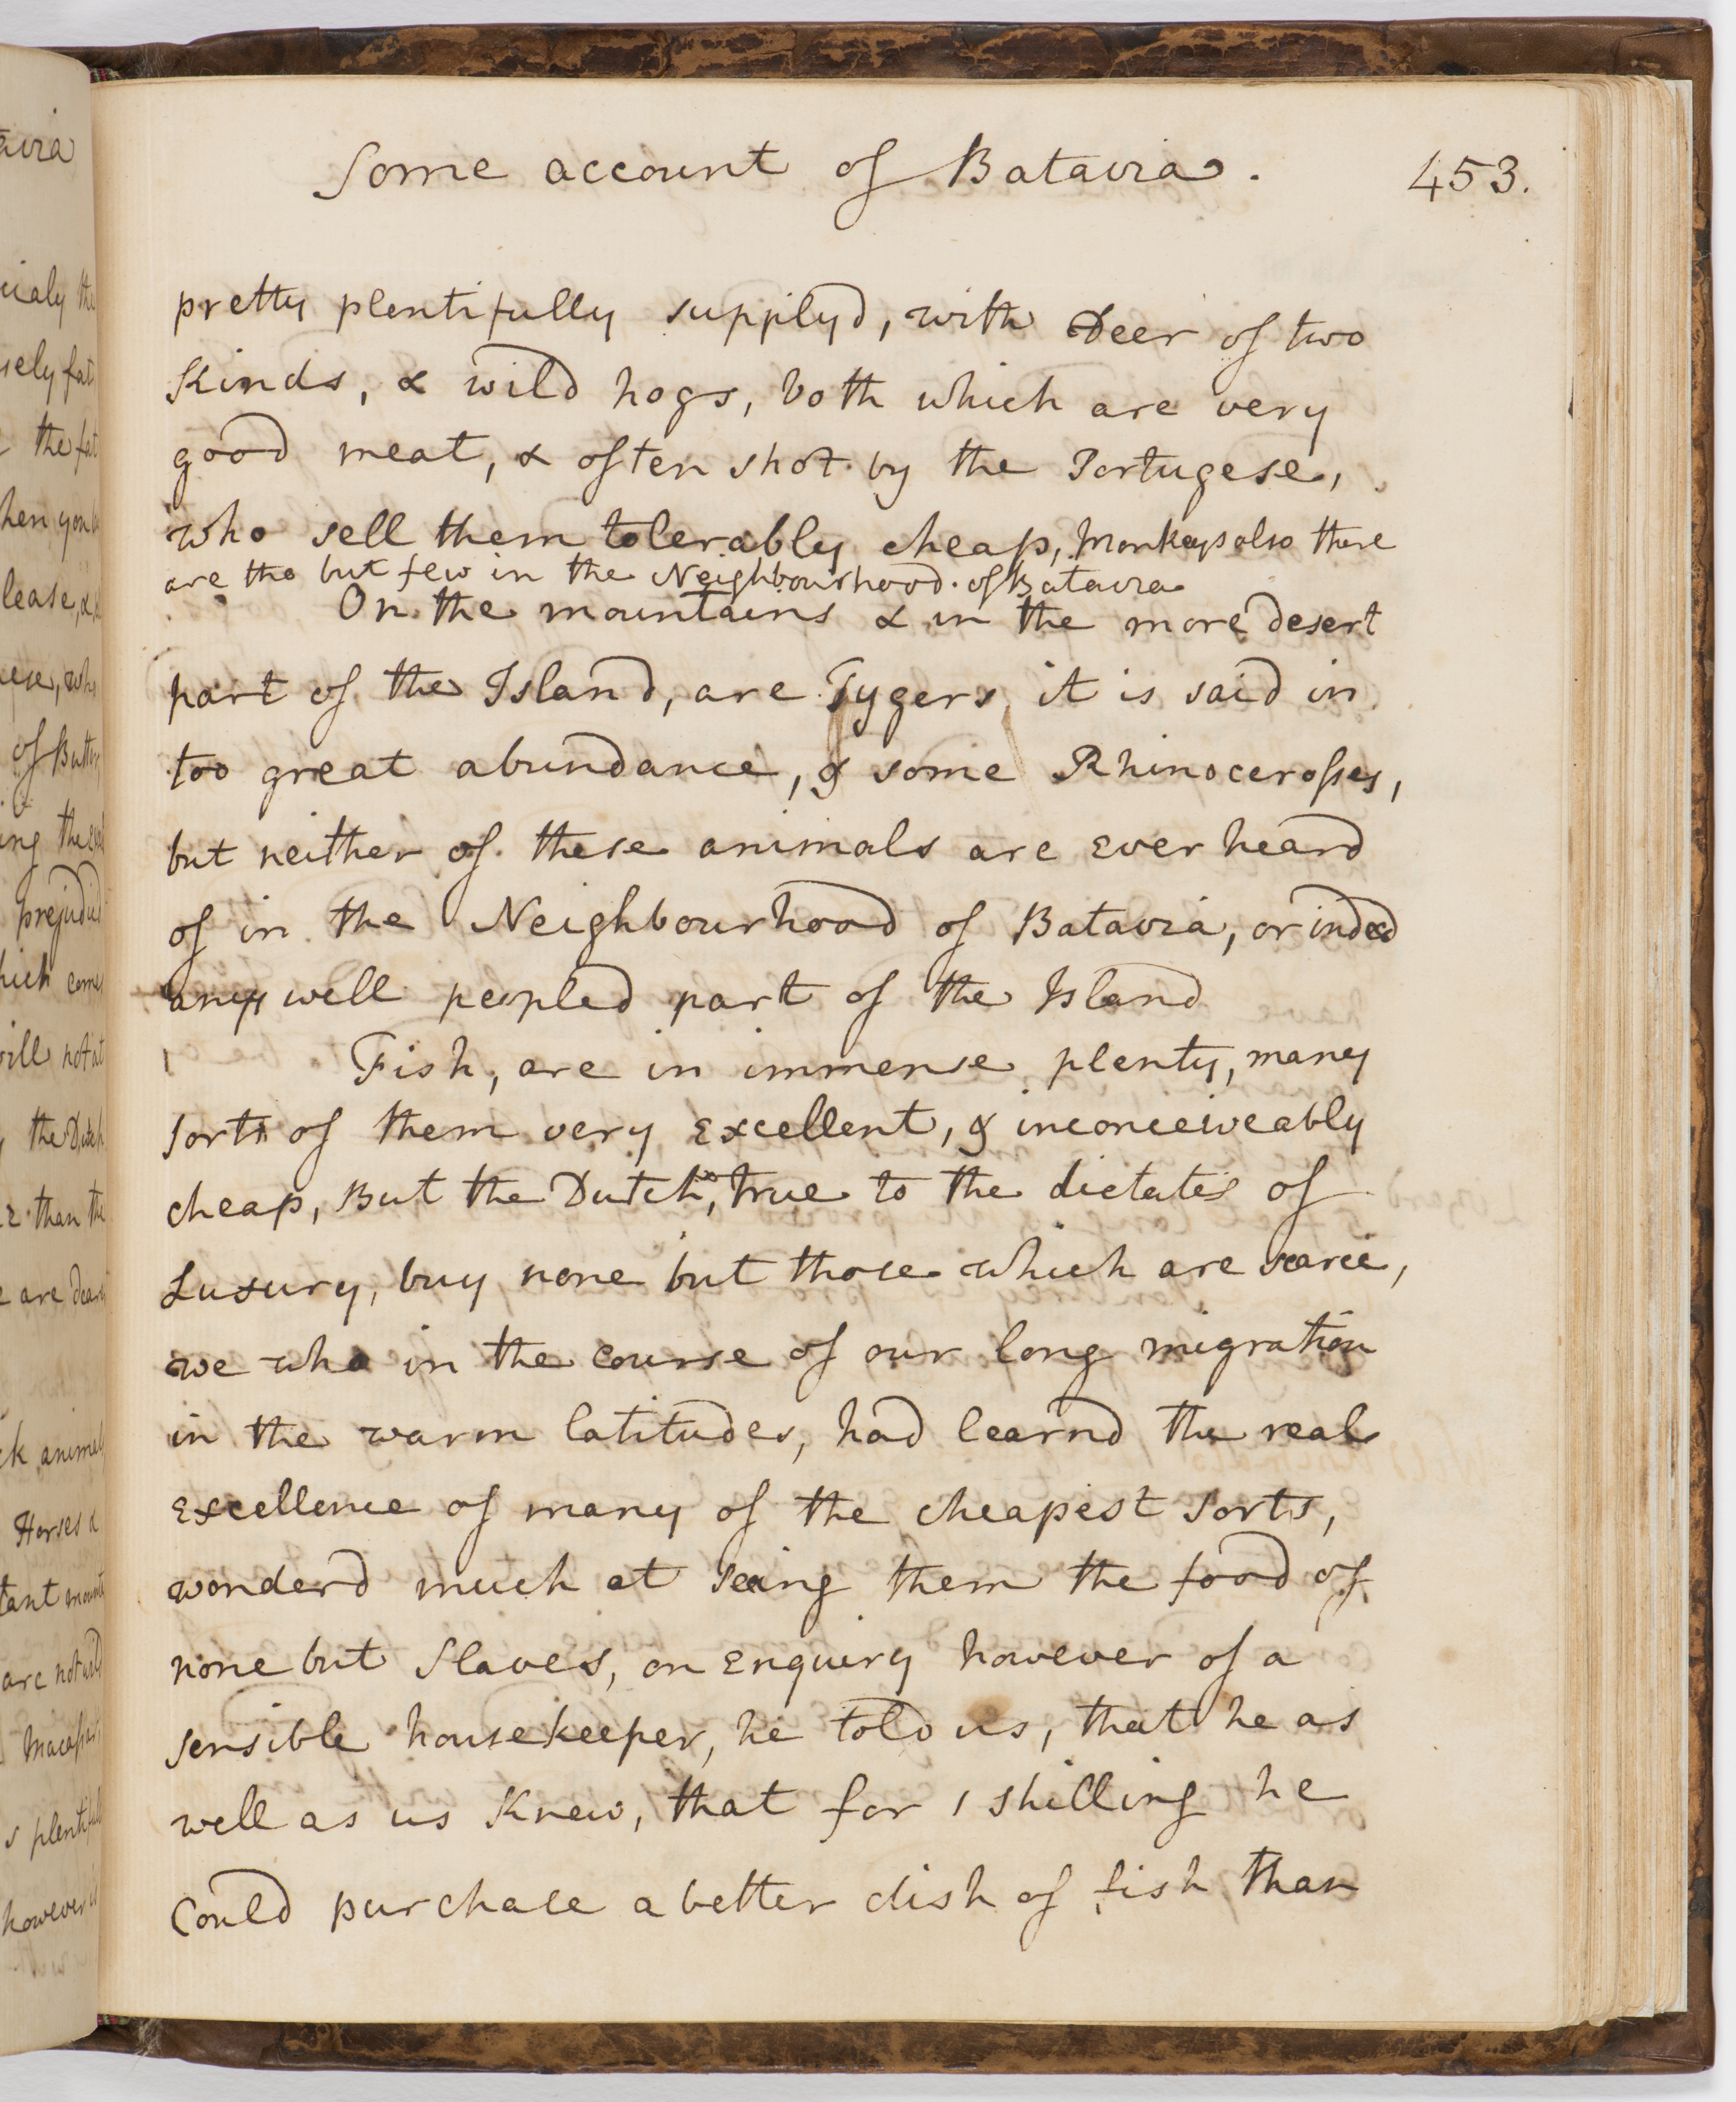 Some account of Batavia. 453.
pretty plentifully supplyd, with Deer of two
Kinds, & wild hogs, both which are very
good meat, & often shot by the Portugese,
who sell them tolerably cheap, Monkeys also there
are tho but few in the Neighbourhood of Batavia
On the mountains & in the more desert
part of the Island, are Tygers, it is said in
too great abundance, & some Rhinocerosses,
but neither of these animals are ever heard
of in the Neighbourhood of Batavia, or indeed
any well peopled part of the Island
Fish, are in immense plenty, many
sorts of them very Excellent, & inconceiveably
cheap, But the Dutch, true to the dictates of
Luxury, buy none but those which are scarce,
we who in the course of our long migration
in the warm latitudes, had learnd the real
Excellence of many of the cheapest sorts,
wonderd much at seing them the food of
none but Slaves, on Enquiry however of a
sensible housekeeper, he told us, that he as
well as us Knew, that for 1 shilling he
Could purchase a better dish of fish than
avia
the
fat
the fat
hen you
lease, &
of Butter
ing the
hich come
will not at
the Dutch
than the
are dearer
animals
Horses &
are not
plentifull
however